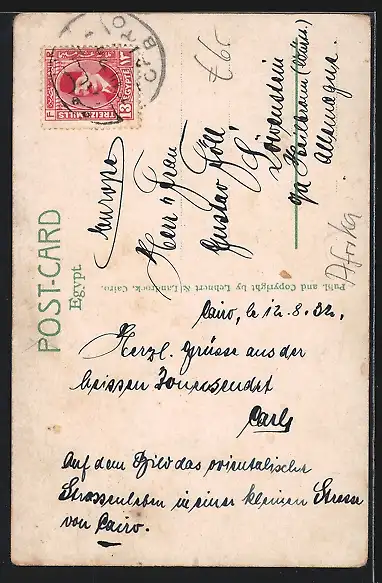 POST-CARD
Egypt.
Publ. and Copyright by Lehnert & Landrock, Cairo.
EGYPTE
TREIZE MILLS
13
CAIRO
£65
Europa
Herr u Frau
Gustav Föll,
Löwenstein
Heilbronn (Württ)
Allemagne.
Afrika
Cairo, le 12.8.32.
Herzl. Grüsse aus der
heissen Zone sendet
Carl
Auf dem Bild das orientalische
Strassenleben in einer kleinen Strasse
von Cairo.